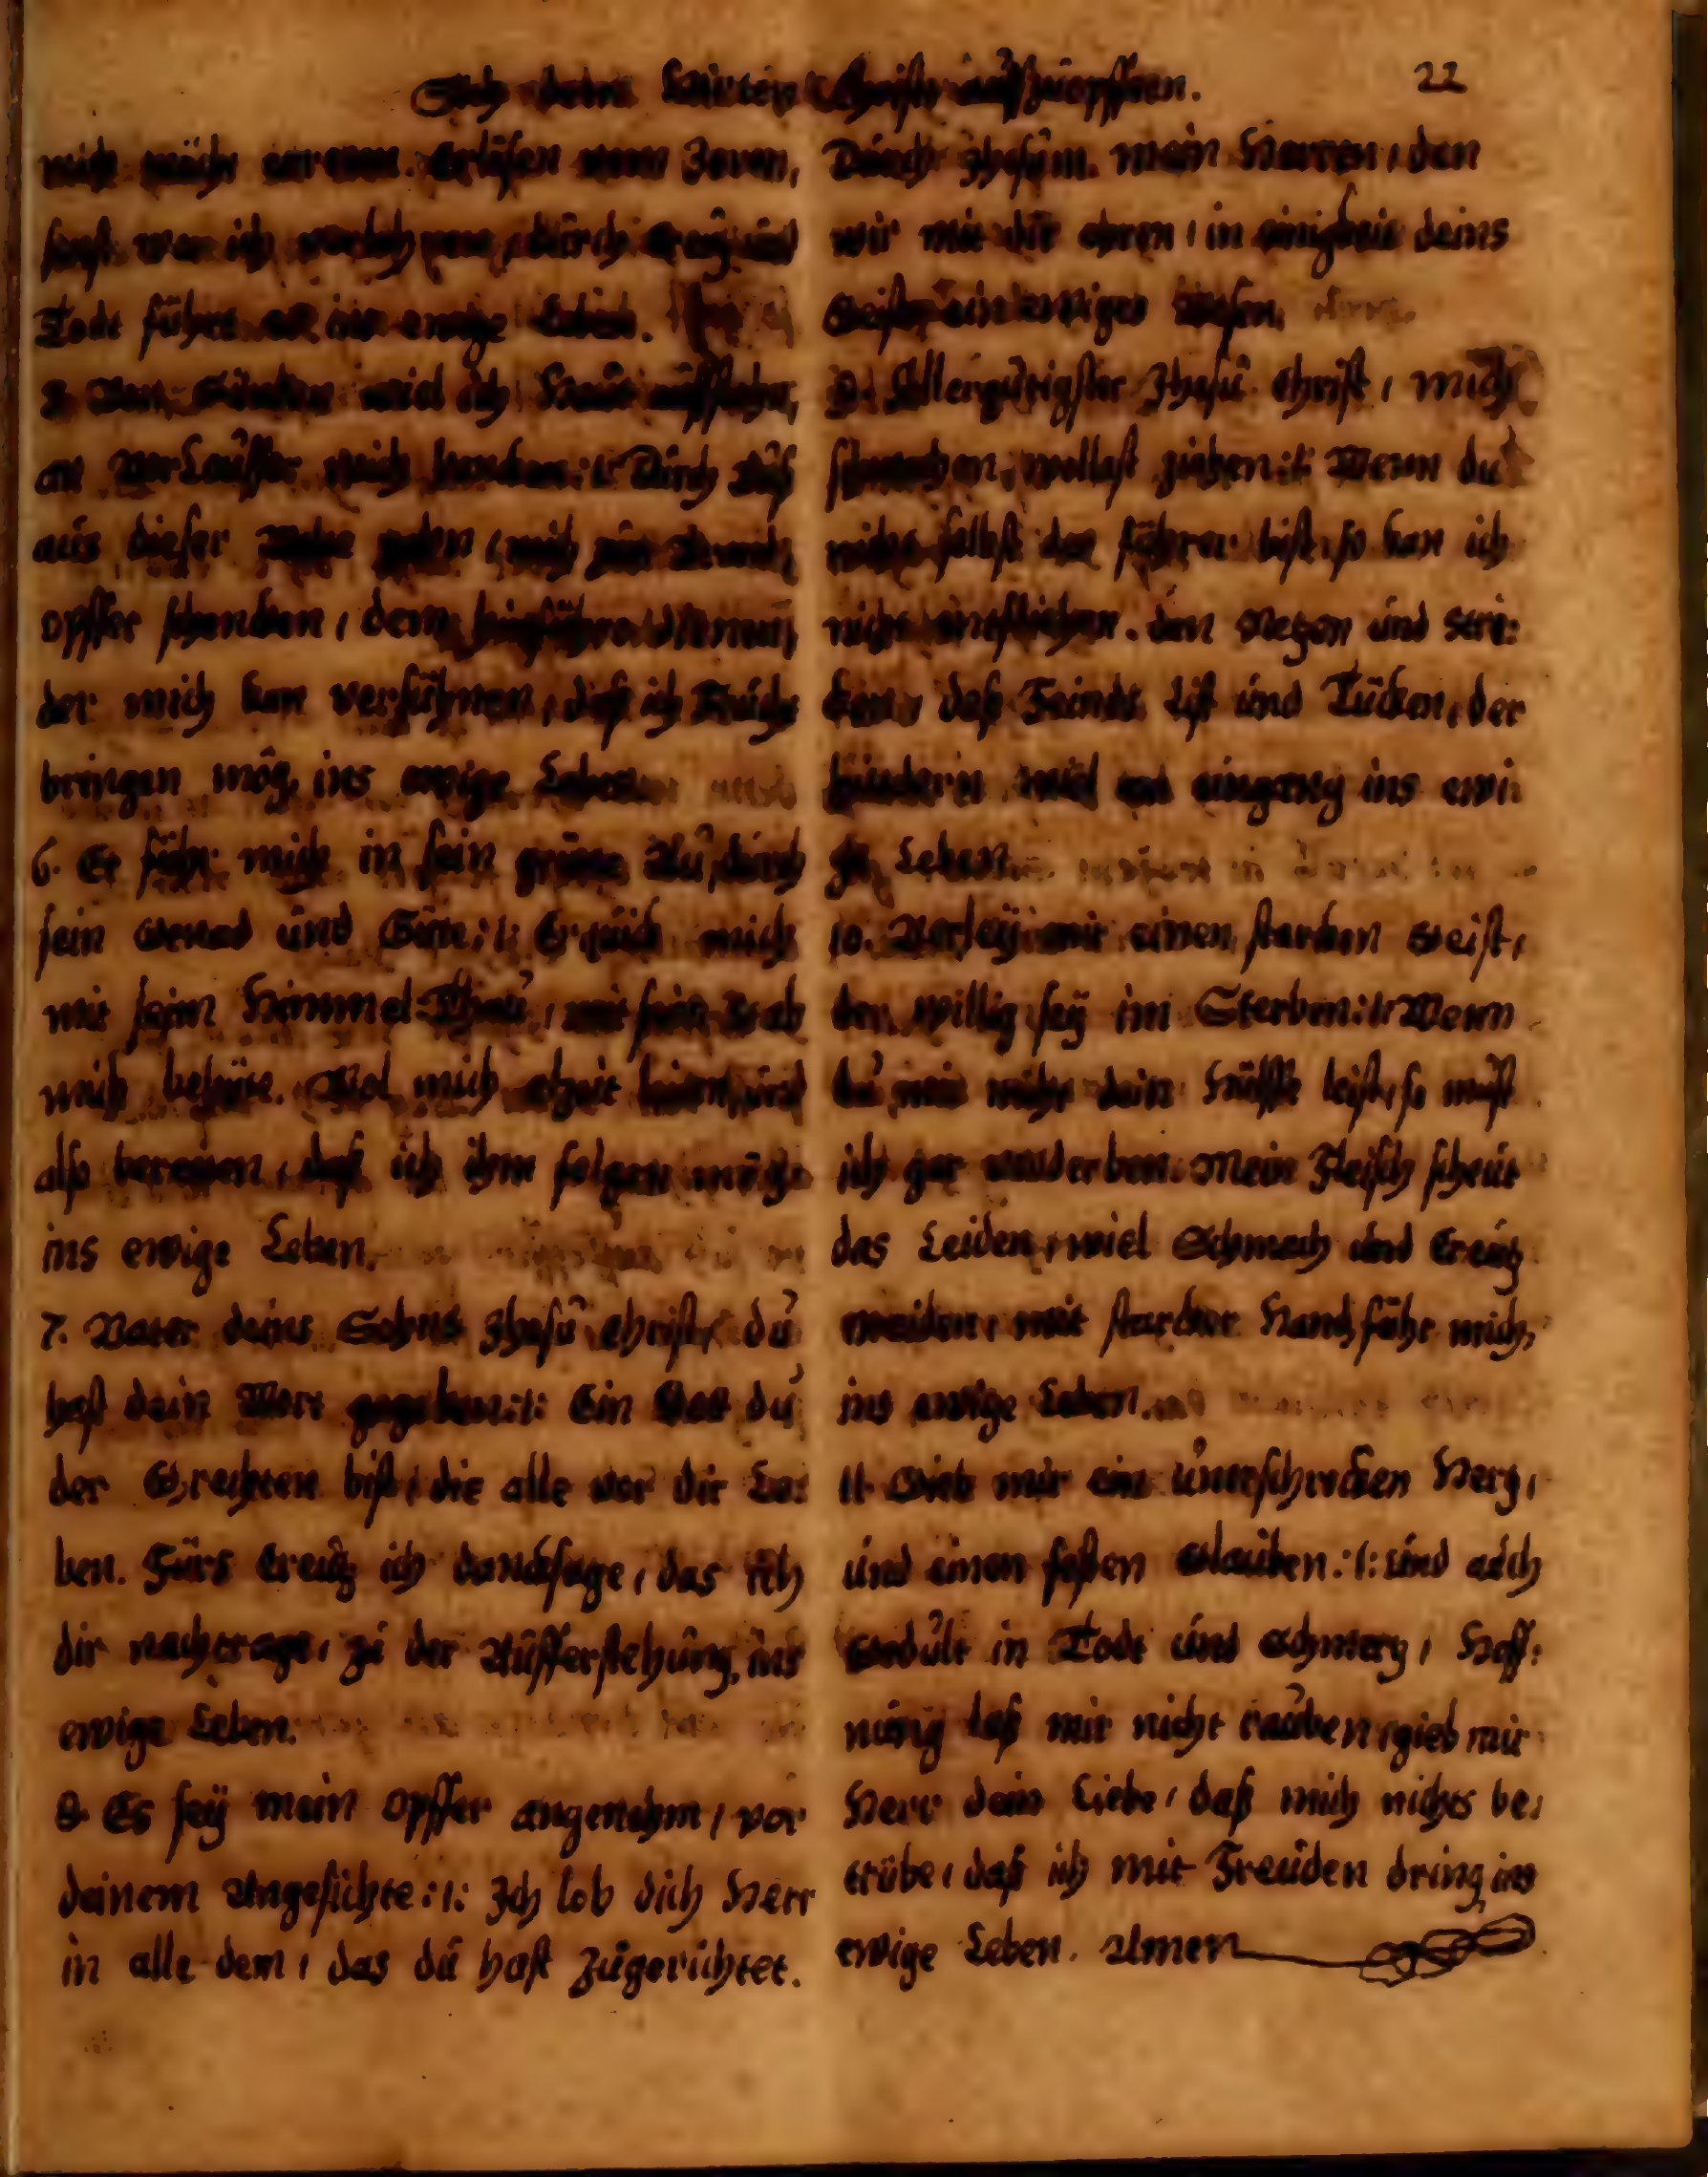 Sich dem Christo auffzuopffren. 22
mich erlösen vom Zoren,
sonst wer ich durch Creutz und
Todt führt er ins ewige Leben.
5. Von Sünden wiel ich auffstehn,
an mich Durch
aus dieser gehn, mich zum
opffer schencken, dem
der mich kan versühnen, daß ich Frücht
bringen mög, ins ewige Leben
6. Er führ mich in sein grüne Au, durch
sein Genad und Güte :/: Erquick mich
mit seim Himmel-Thau, mit sein Stab
mich behüte. Wol mich alzeit leiten, und
also bereiten, daß ich ihm folgen möge
ins ewige Leben.
7. Vater deins Sohns Jhesu Christ, du
hast dein Wort gegeben :/: Ein Gott du
der Grechten bist, die alle vor dir Le:
ben. Fürs Creutz ich dancksage, das ich
dir nachtrage, zu der Aufferstehung, ins
ewige Leben.
8. Es seÿ mein Opffer angenehm, vor
deinem Angesichte :/: Jch lob dich Herr
in alle dem, das du hast zugerichtet.
Durch Jhesum mein Herren, den
wir mit dir ehren, in einigkeit deins
Geistes ein ewiges Wesen.
9. Allergütigster Jhesu Christ, mich
schwachen, wollest ziehen :/: Wenn du
nicht selbst der führer bist, so kan ich
nicht entfliehen. den Netzen und Stri:
cken, daß Feinds List und Tücken, der
hindern wiel am eingang ins ewi:
ge Leben
10. Verleÿ mir einen starcken Geist,
der willig seÿ im Sterben :/: Wenn
du mir nicht dein Hülffe leist, so must
ich gar verderben. Mein Fleisch scheut
das Leiden, wiel Schmach und Creutz
meiden, mit starcker Hand führ mich,
ins ewige Leben.
11. Gieb mir ein unerschrocken Hertz,
und einen festen Glauben :/: und auch
Gedult in Todt und Schmertz, Hoff:
nung laß mir nicht rauben, gieb mir
Herr dein Liebe, daß mich nichts be:
trübe, daß ich mit Freuden dring ins
ewige Leben. Amen